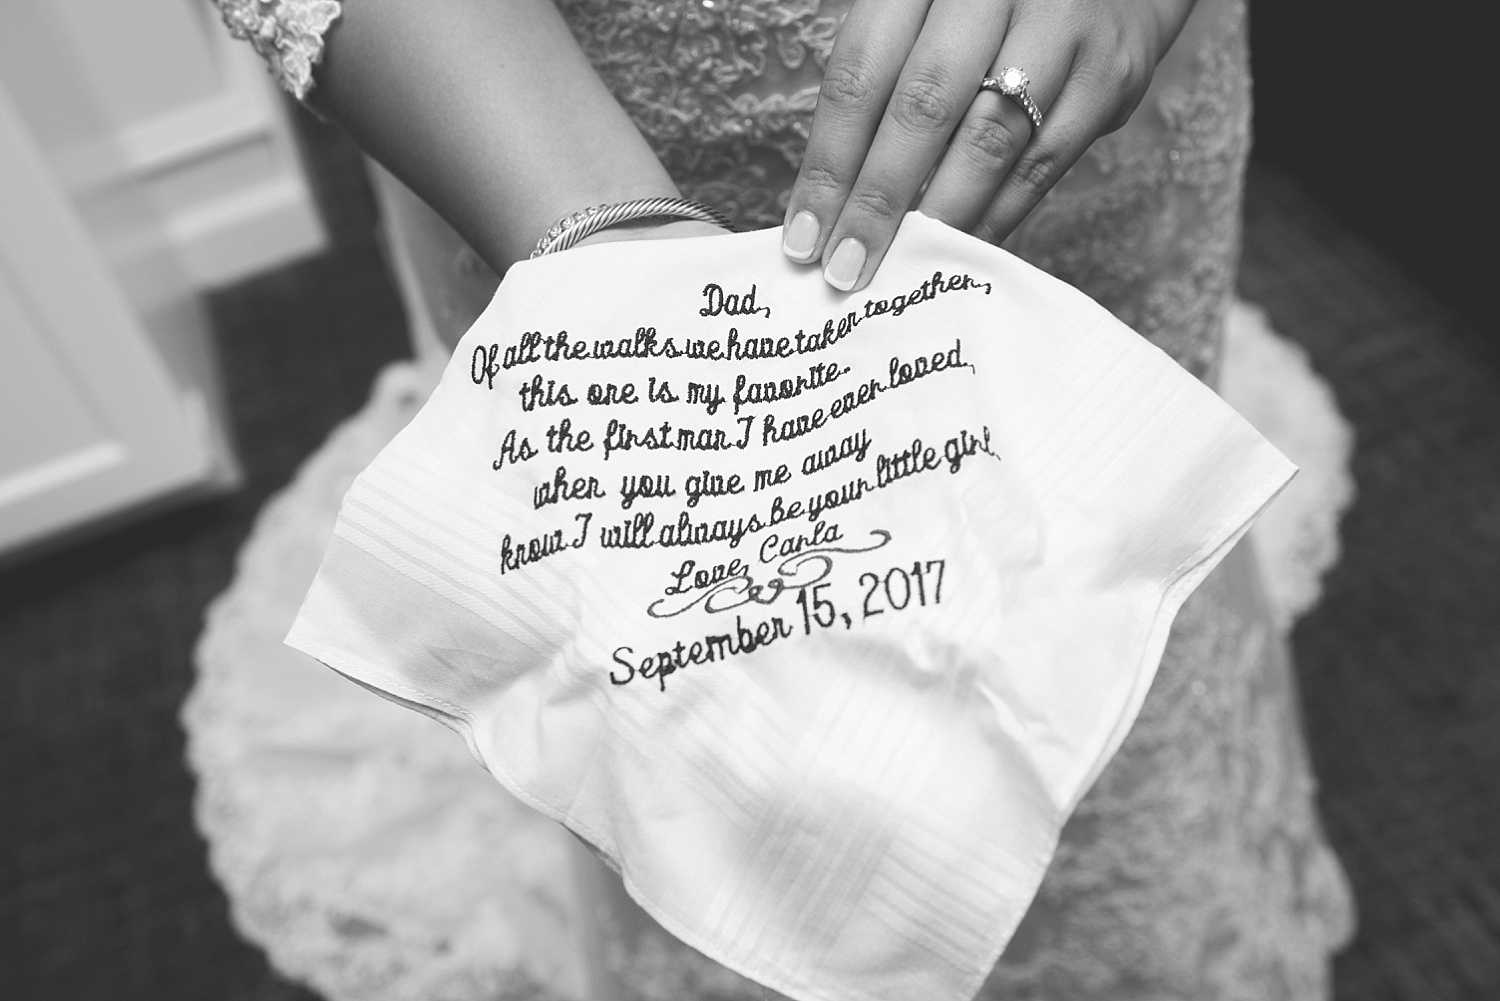 Dad,
Of all the walks we have taken together,
this one is my favorite.
As the first man I have ever loved,
when you give me away
know I will always be your little girl.
Love, Carla
September 15, 2017